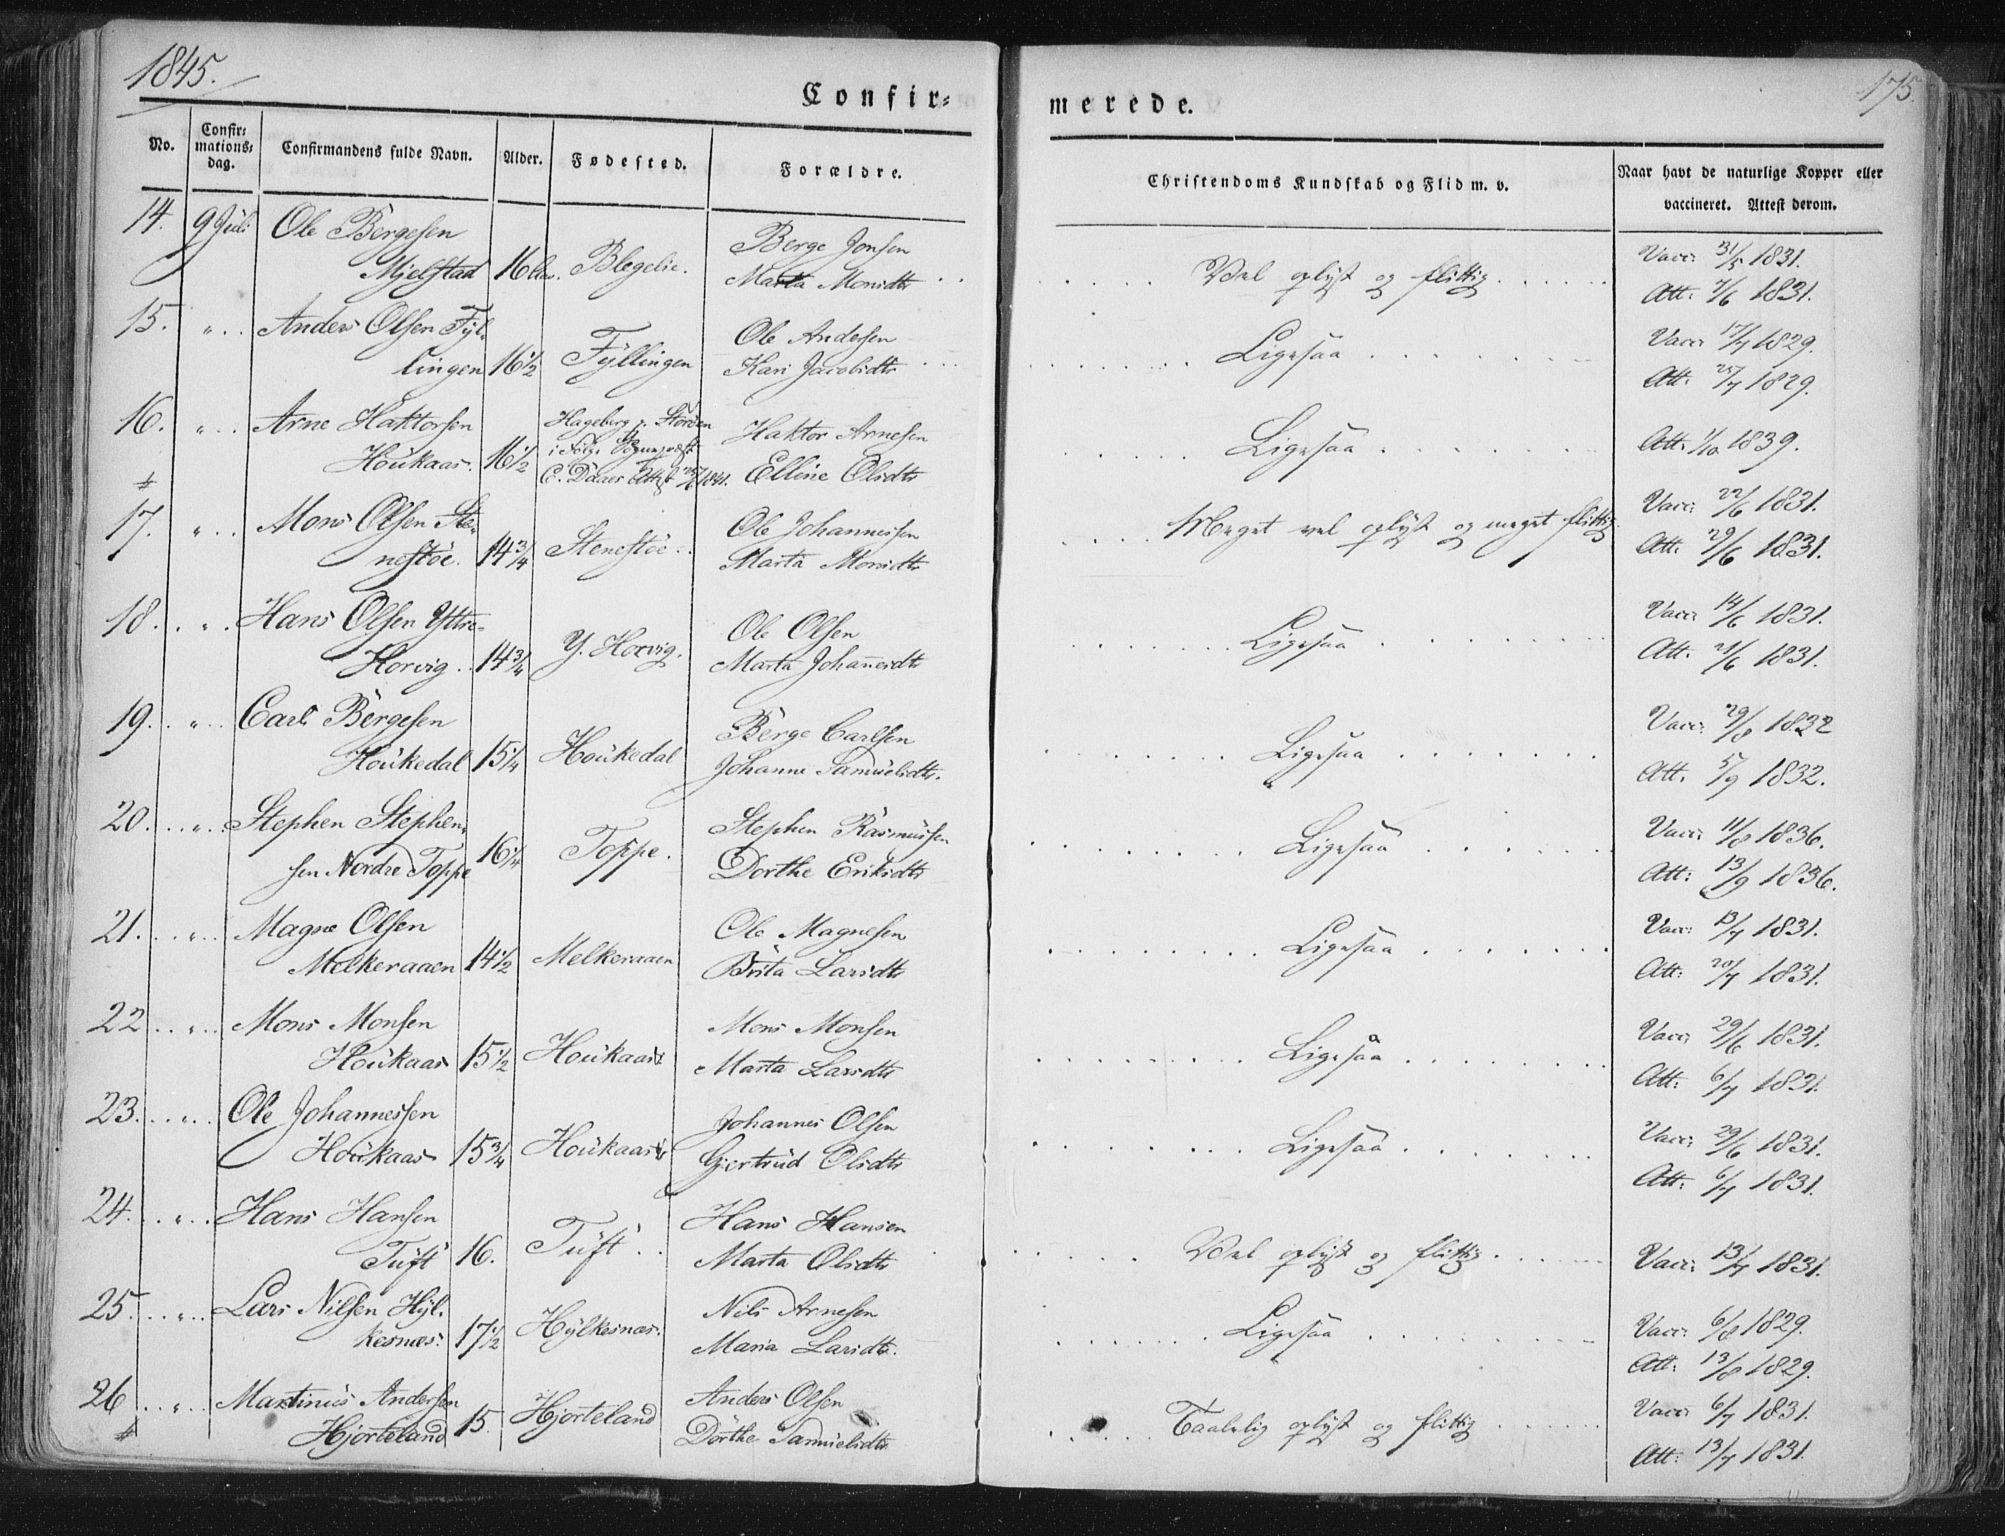 1845.
175.
Confir=
merede.
No.
Confir=
mations=
dag.
Confirmandens fulde Navn.
Alder.
Fødested.
Forældre.
Christendoms Kundskab og Flid m. v.
Naar havt de naturlige Kopper eller
vaccineret. Attest derom.
14. 9 Juli Ole Bergesen Berge Jonsen Vacc: 31/5 1831.
Mjelstad 16 Blegelie. Marta Monsdtr Vel oplyst og flittig Att: 7/6 1831.
15. " Anders Olsen Fyl= Ole Andersen Vacc: 17/7 1829.
lingen 16½ Fyllingen Kari Jacobsdtr Ligesaa Att: 25/7 1829.
16. " Arne Haktorsen Hageberg Haktor Arnesen
Houkaas. 16½ Elline Olsdtr Ligesaa Att: 1/10 1839.
17. " Mons Olsen Ste= Ole Johannessen Meget vel oplyst og meget flittig Vacc: 22/6 1831.
nestöe. 14¾ Stenestöe. Marta Monsdtr Att: 29/6 1831.
18. " Hans Olsen Yttre= Ole Olsen Vacc: 14/6 1831.
Horvig. 14¾ Y. Horvig. Marta Johannesdtr Ligesaa Att: 21/6 1831.
19. " Carl Bergesen Berge Carlsen Vacc: 29/8 1832
Houkedal 15¼ Houkedal Johanne Samuelsdtr. Ligesaa Att: 5/9 1832.
20. " Stephen Stephen= Stephen Rasmussen Vacc: 11/8 1836.
sen Nordre Toppe 16¼ Toppe. Dorthe Eriksdtr Ligesaa Att: 13/9 1836.
21. " Magne Olsen Ole Magnesen Vacc: 13/7 1831.
Melkeraaen 14½ Melkeraaen Brita Larsdtr Ligesaa Att: 20/7 1831.
22 " Mons Monsen Mons Monsen Vacc: 29/6 1831.
Houkaas 15½ Houkaas Marta Larsdtr Ligesaa Att: 6/7 1831.
23. " Ole Johannessen Johannes Olsen Vacc: 29/6 1831.
Houkaas 15¾ Houkaas Gjertrud Olsdtr Ligesaa Att: 6/7 1831.
24. " Hans Hansen Hans Hansen
Tuft 16. Tuft. Marta Olsdtr Vel oplyst og flittig Vacc: 13/7 1831.
25. " Lars Nilsen Hyl= Nils Arnesen Vacc: 6/8 1829.
kesnæs. 17½ Hylkesnæs. Maria Larsdtr. Ligesaa Att: 13/8 1829.
26 " Martinus Andersen Anders Olsen Vacc: 6/7 1831.
Hjorteland 15. Hjorteland Dorthe Samuelsdtr Taalelig oplyst og flittig Att: 13/7 1831.